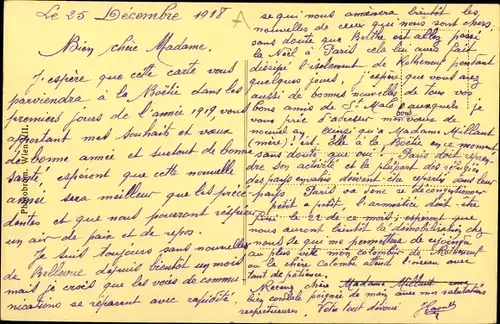 Le 25 Décembre 1918
Bien chère Madame,
J'espère que cette carte vous
parviendra à la Boëtie dans les
premiers jours de l'année 1919, vous
apportant mes souhaits et vœux
de bonne année et surtout de bonne
santé, espérant que cette nouvelle
année sera meilleur que les précé-
dentes et que nous pourrons respirer
un air de paix et de repos.
Je suis toujours sans nouvelles
de Bellevue depuis bientôt un mois
mais je crois que les voies de commu-
nications se réparent avec rapidité,
Photobrom. Wien XII.
ce qui nous amènera bientôt les
nouvelles de ceux qui nous sont chers,
sans doute que est allée passer
la Noël à Paris cela lui aura fait
dissiper l'isolement de pendant
quelques jours, j'espère que vous avez
aussi de bonnes nouvelles de tous vos
bons amis de St Malo auxquels je
vous prie d'adresser mon bon de
nouvel an, (ainsi qu'à Madame Millaut
mère) est-elle à la Boëtie en ce moment
sans doute que oui. Paris doit repren-
dre son activité et la plupart des réfugiés
des pays envahis doivent être repartis dans leur
pays. Paris va donc se décongestionner
petit à petit. l'armistice doit être
le 22 de ce mois; espérons que
nous aurons bientôt la démobilisation chez
nous ce que me permettra de rejoindre
au plus vite mon de
ou la chère attend avec
tant de patience.
Recevez chère Madame Millaut une
bien cordiale poignée de main avec mes salutations
respectueuses. Votre tout dévoué